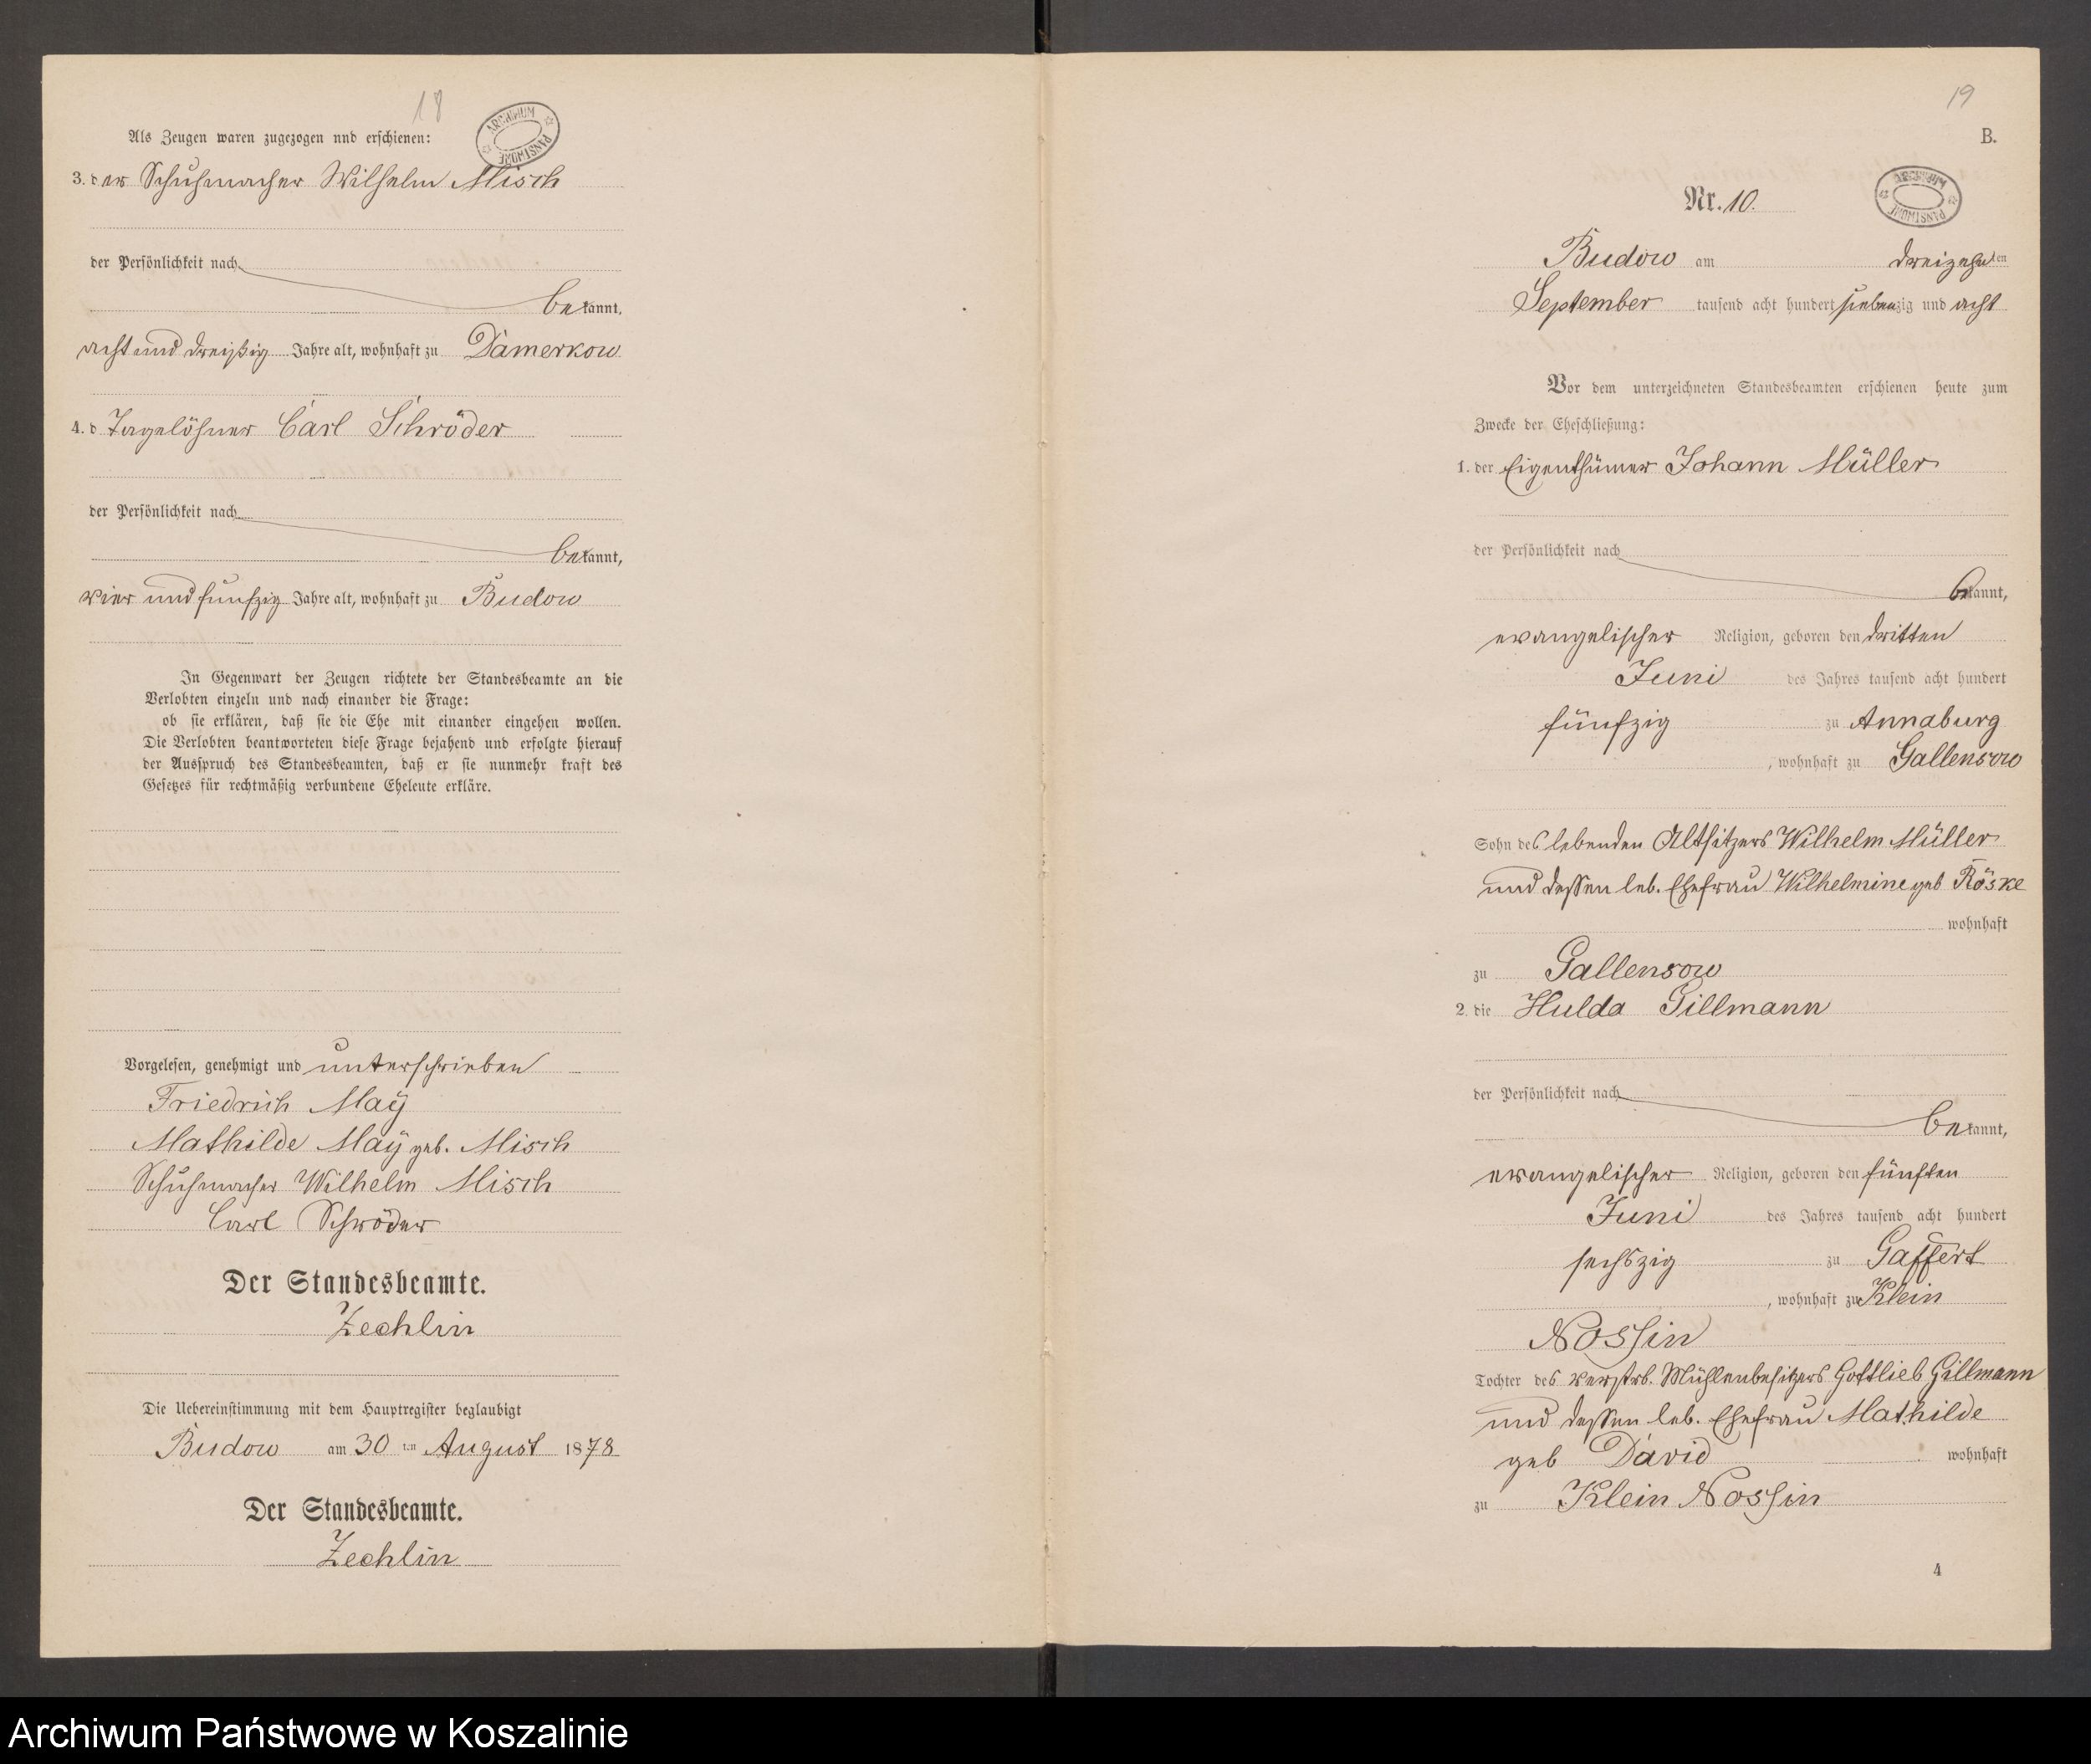 18
ARCHIWUM PAŃSTWOWE
Als Zeugen waren zugezogen nnd erschienen:
3. der Schuhmacher Wilhelm Misch
der Persönlichkeit nach
bekannt,
acht und dreißig Jahre alt, wohnhaft zu Damerkow
4. d Tagelöhner Carl Schröder
der Persönlichkeit nach
bekannt,
vier und fünfzig Jahre alt, wohnhaft zu Budow
In Gegenwart der Zeugen richtete der Standesbeamte an die
Verlobten einzeln und nach einander die Frage:
ob sie erklären, daß sie die Ehe mit einander eingehen wollen.
Die Verlobten beantworteten diese Frage bejahend und erfolgte hierauf
der Ausspruch des Standesbeamten, daß er sie nunmehr kraft des
Gesetzes für rechtmäßig verbundene Eheleute erkläre.
Vorgelesen, genehmigt und unterschrieben
Friedrich Maÿ
Mathilde Maÿ geb. Misch
Schuhmacher Wilhelm Misch
Carl Schröder
Der Standesbeamte.
Zechlin
Die Uebereinstimmung mit dem Hauptregister beglaubigt
Budow am 30 ten August 1878
Der Standesbeamte.
Zechlin
19
B.
ARCHIWUM PAŃSTWOWE
Nr. 10.
Budow am dreizehnten
September tausend acht hundert siebenzig und acht
Vor dem unterzeichneten Standesbeamten erschienen heute zum
Zwecke der Eheschließung:
1. der Eigenthümer Johann Müller
der Persönlichkeit nach
bekannt,
evangelischer Religion, geboren den dritten
Juni des Jahres tausend acht hundert
fünfzig zu Annaburg
, wohnhaft zu Gallensow
Sohn des lebenden Altsitzers Wilhelm Müller
und dessen leb. Ehefrau Wilhelmine geb Röske
wohnhaft
zu Gallensow
2. die Hulda Gillmann
der Persönlichkeit nach
bekannt,
evangelischer Religion, geboren den fünften
Juni des Jahres tausend acht hundert
sechszig zu Gaffert
, wohnhaft zu Klein
Nossin
Tochter des verstrb. Mühlenbesitzers Gottlieb Gillmann
und dessen leb. Ehefrau Mathilde
geb David wohnhaft
zu Klein Nossin
4
Archiwum Państwowe w Koszalinie